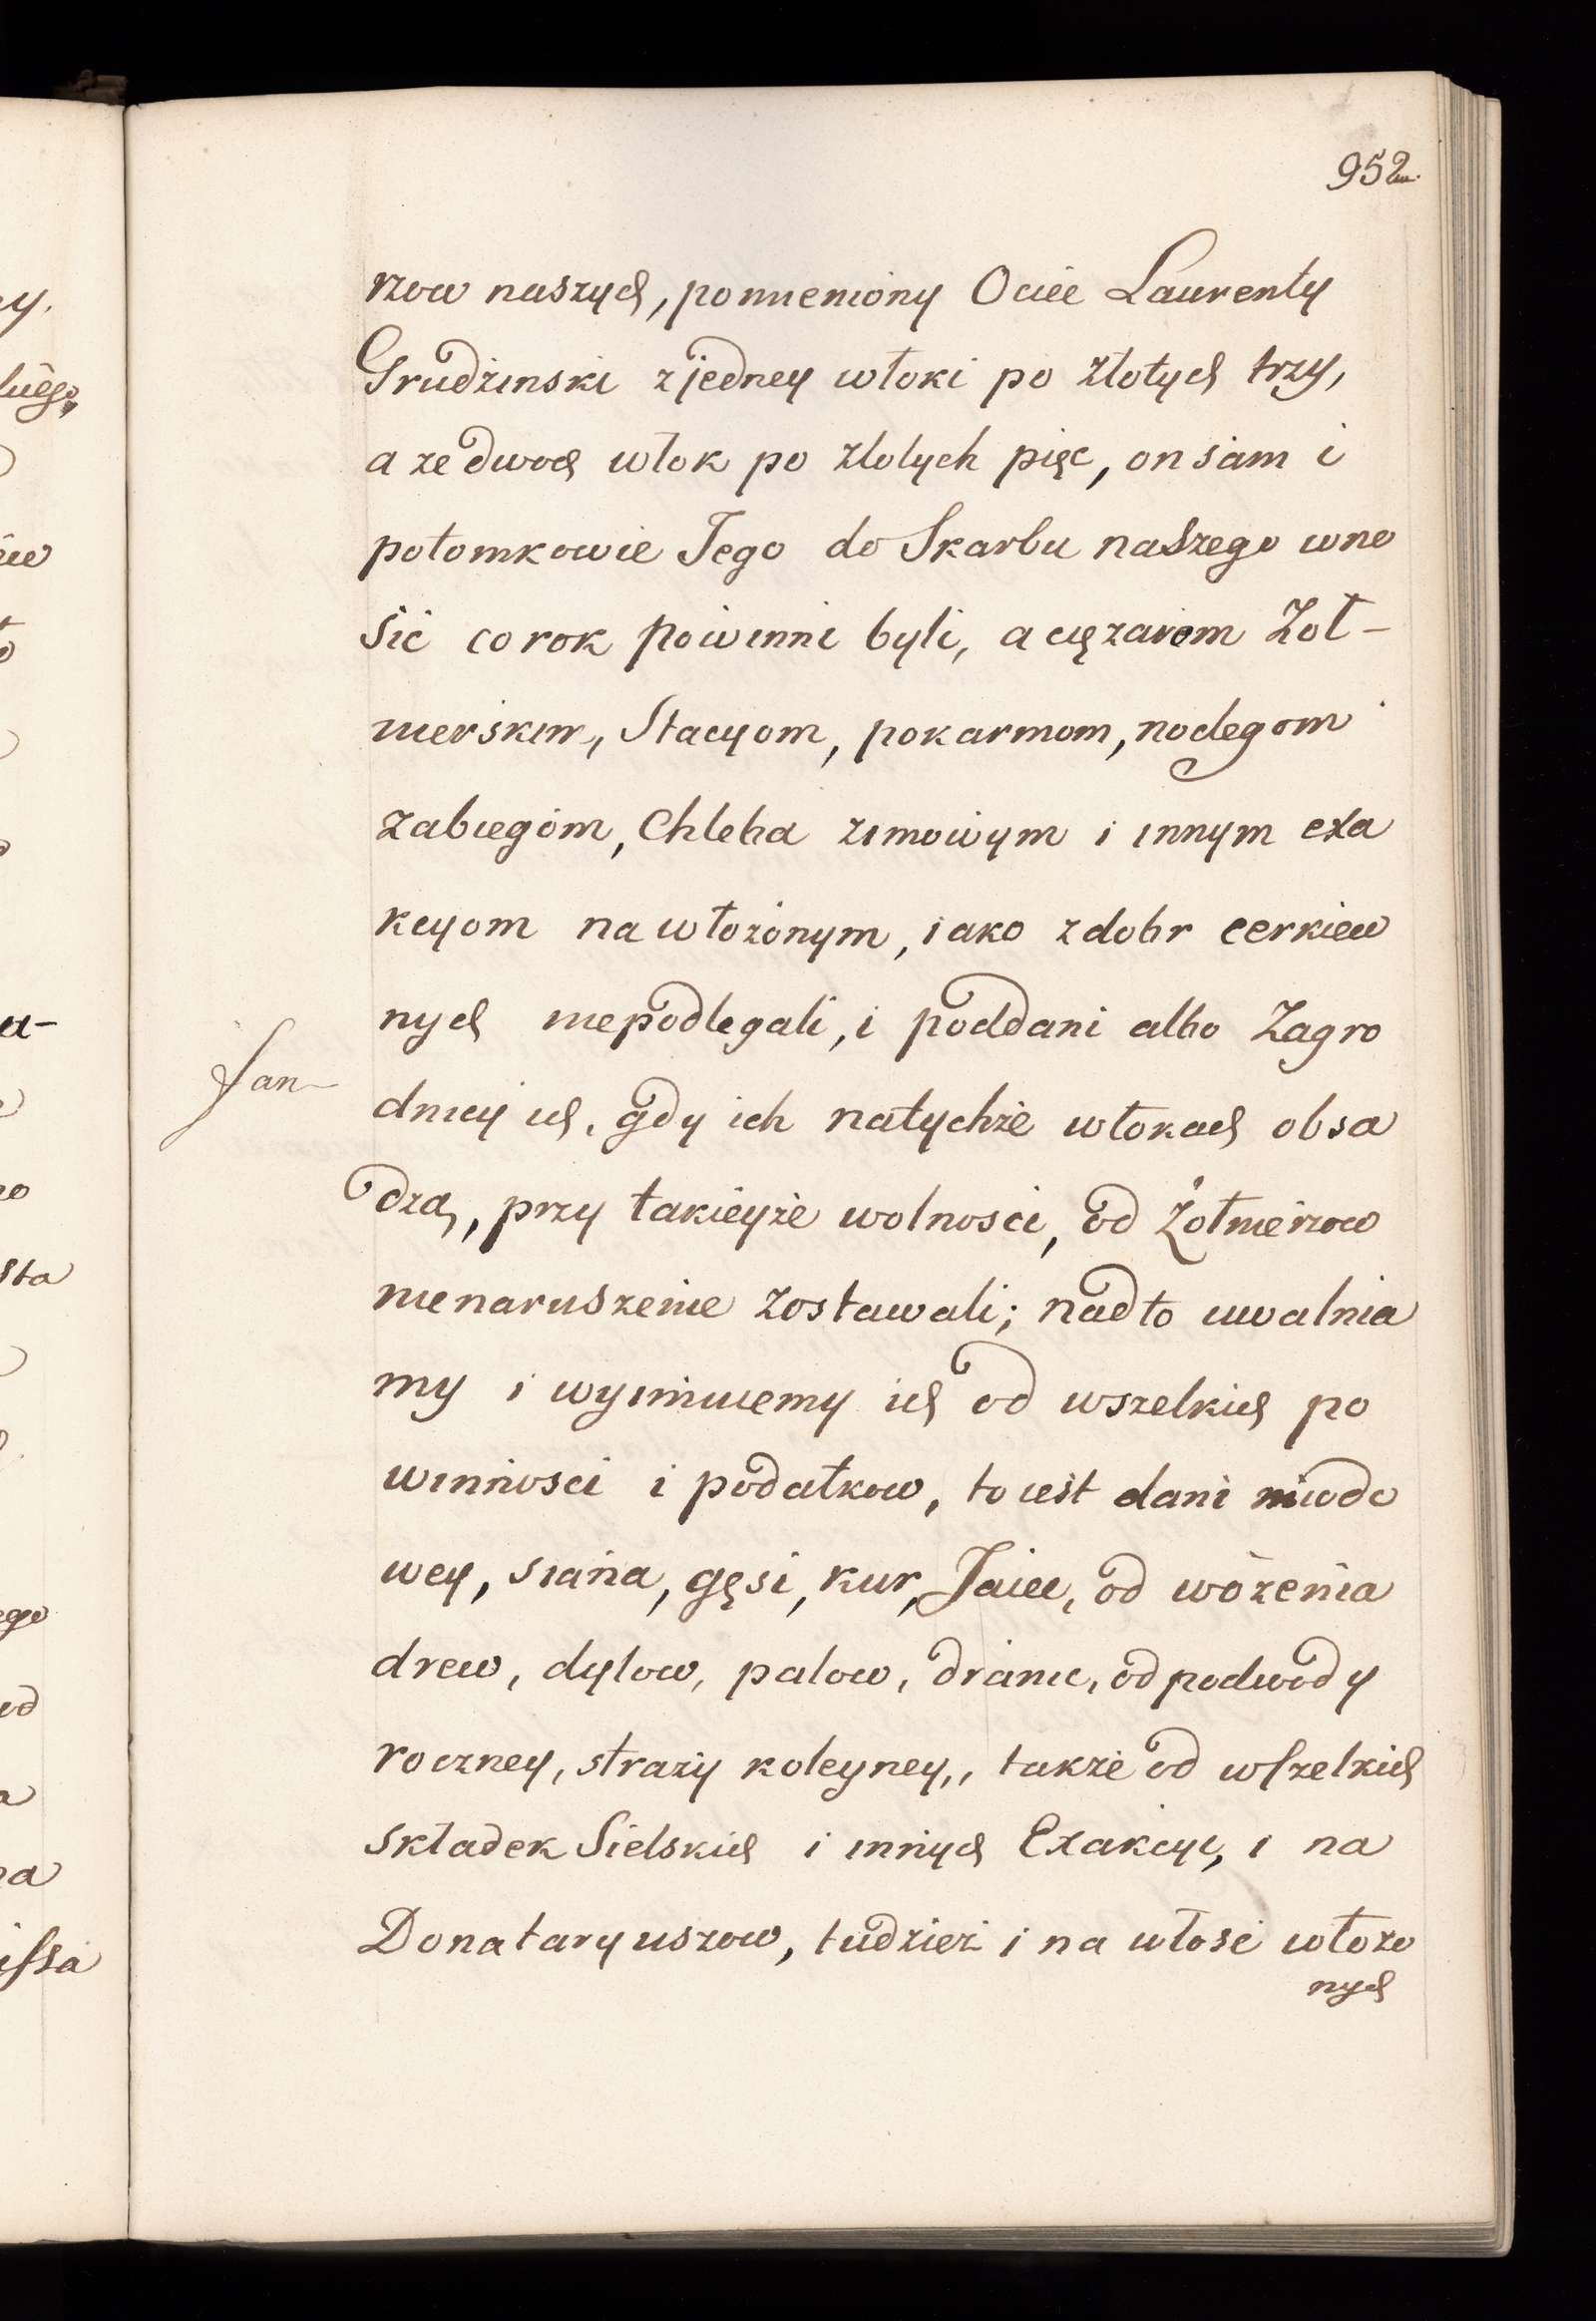 952.
rzow naszych, pomieniony Ociec Laurenty
Grudzinski z jedney włoki po złotych trzy,
a ze dwoch włok po złotych pięc, on sam i
potomkowie Jego do Skarbu naszego wno
sić co rok powinni byli, a cięzarom Zoł-
nierskim, Stacyom, pokarmom, noclegom
zabiegom, Chleba zimowym i innym exa
kcyom na włożonym, iako z dobr cerkiew
nych niepodlegali, i poddani albo Zagro
dnicy ich, gdy ich natychże włokach obsa
dzą, przy takieyże wolnosci, od Żołnierzow
nienaruszenie zostawali; nadto uwalnia
my i wyimuiemy ich od wszelkich po
winnosci i podatkow, to iest dani miodo
wey, siana, gęsi, kur, Jaiec, od wożenia
drew, dylow, palow, dranic, od podwody
roczney, straży koleyney,, także od wszelkich
składek Sielskich i innych Exakcyi, i na
Donataryuszow, tudzież i na włość włożo
nych